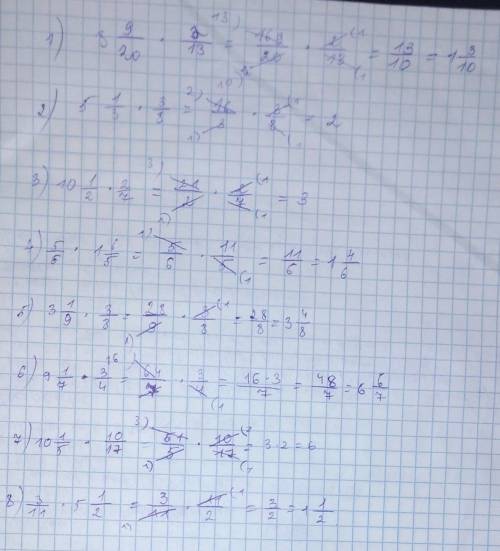 1) 3 9/20 · 2/13 = 169/20 · 2/13 = 13/10 = 1 3/10
2) 5 1/3 · 3/8 = 16/3 · 3/8 = 2
3) 10 1/2 · 2/7 = 21/2 · 2/7 = 3
4) 5/6 · 1 6/5 = 5/6 · 11/5 = 11/6 = 1 4/6
5) 3 1/9 · 3/8 = 28/9 · 3/8 = 28/8 = 3 4/8
6) 9 1/7 · 3/4 = 64/7 · 3/4 = 16·3/7 = 48/7 = 6 6/7
7) 10 1/5 · 10/17 = 51/5 · 10/17 = 3·2 = 6
8) 3/11 · 5 1/2 = 3/11 · 11/2 = 3/2 = 1 1/2